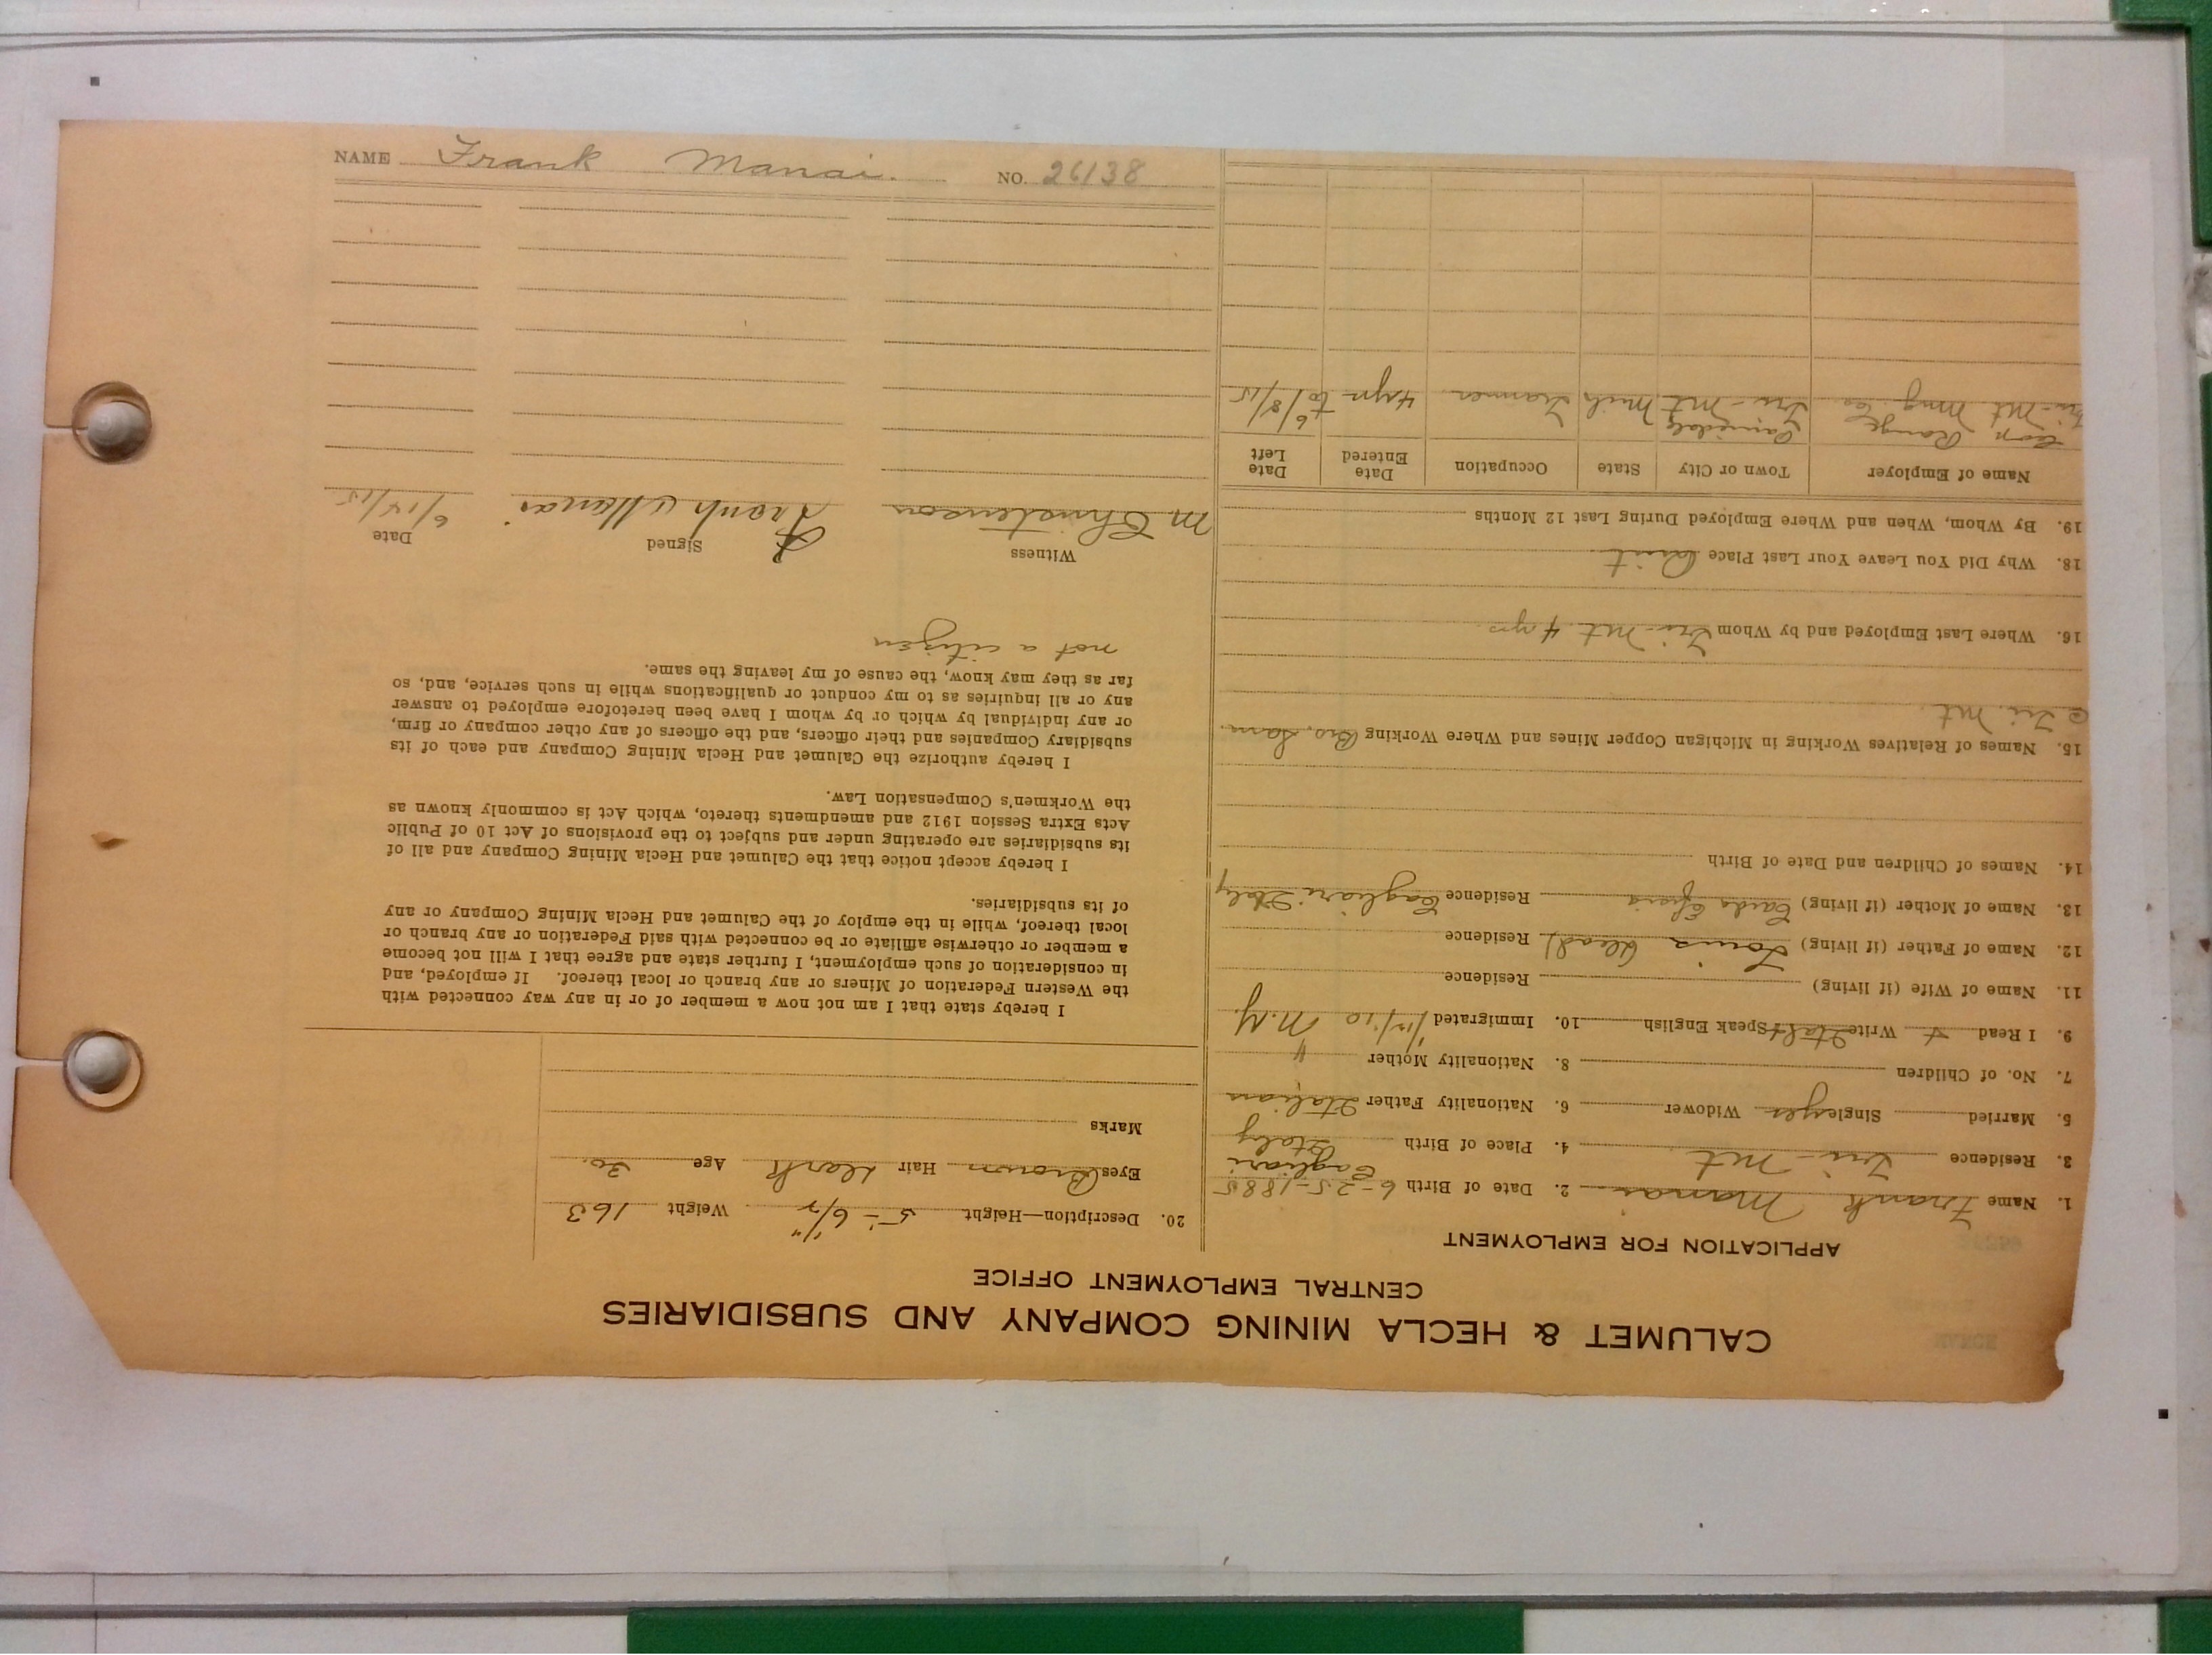 NAME Frank Manai. NO. 26138
CALUMET & HECLA MINING COMPANY AND SUBSIDIARIES
CENTRAL EMPLOYMENT OFFICE
APPLICATION FOR EMPLOYMENT
1. Name Frank Manai 2. Date of Birth 6-25-1885
3. Residence Tri-Mt 4. Place of Birth Cagliari Italy
5. Married Single yes Widower 6. Nationality Father Italian
7. No. of Children 8. Nationality Mother "
9. I Read + Write Ital + Speak English 10. Immigrated N.Y.
11. Name of Wife (if living) Residence
12. Name of Father (if living) Louis (dead) Residence
13. Name of Mother (if living) Residence Cagliari Italy
14. Names of Children and Date of Birth
15. Names of Relatives Working in Michigan Copper Mines and Where Working Bro, Sam.
@ Tri. Mt.
16. Where Last Employed and by Whom Tri-Mt. 4 yrs.
18. Why Did You Leave Your Last Place Quit
19. By Whom, When and Where Employed During Last 12 Months
Name of Employer Town or City State Occupation Date Entered Date Left
Cop Range Painesdale
Tri-Mt Mng. Co Tri-Mt Mich Trammer 4 yrs to 6/8/15
20. Description—Height 5'-6 1/2" Weight 163
Eyes Brown Hair Dark Age 30.
Marks
I hereby state that I am not now a member of or in any way connected with
the Western Federation of Miners or any branch or local thereof. If employed, and
in consideration of such employment, I further state and agree that I will not become
a member or otherwise affiliate or be connected with said Federation or any branch or
local thereof, while in the employ of the Calumet and Hecla Mining Company or any
of its subsidiaries.
I hereby accept notice that the Calumet and Hecla Mining Company and all of
its subsidiaries are operating under and subject to the provisions of Act 10 of Public
Acts Extra Session 1912 and amendments thereto, which Act is commonly known as
the Workmen's Compensation Law.
I hereby authorize the Calumet and Hecla Mining Company and each of its
subsidiary Companies and their officers, and the officers of any other company or firm,
or any individual by which or by whom I have been heretofore employed to answer
any or all inquiries as to my conduct or qualifications while in such service, and, so
far as they may know, the cause of my leaving the same.
not a citizen
Witness Signed Date
M Christenson Frank Manai 6/14/15